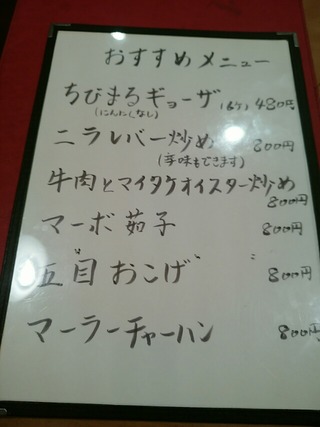 おすすめメニュー
ちびまるギョーザ (6ケ) 480円
(にんにくなし)
ニラレバー炒め 800円
(辛味もできます)
牛肉とマイタケオイスター炒め
800円
マーボ茄子 800円
五目おこげ 800円
マーラーチャーハン 800円